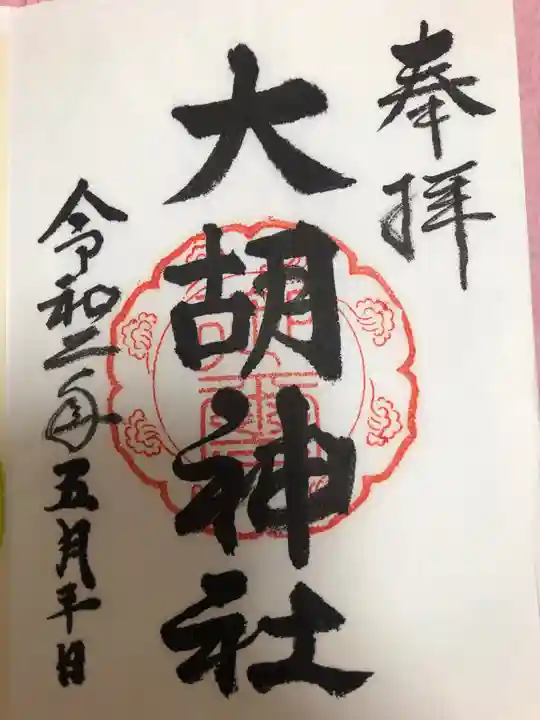 奉拝
大胡神社
令和二年五月 日